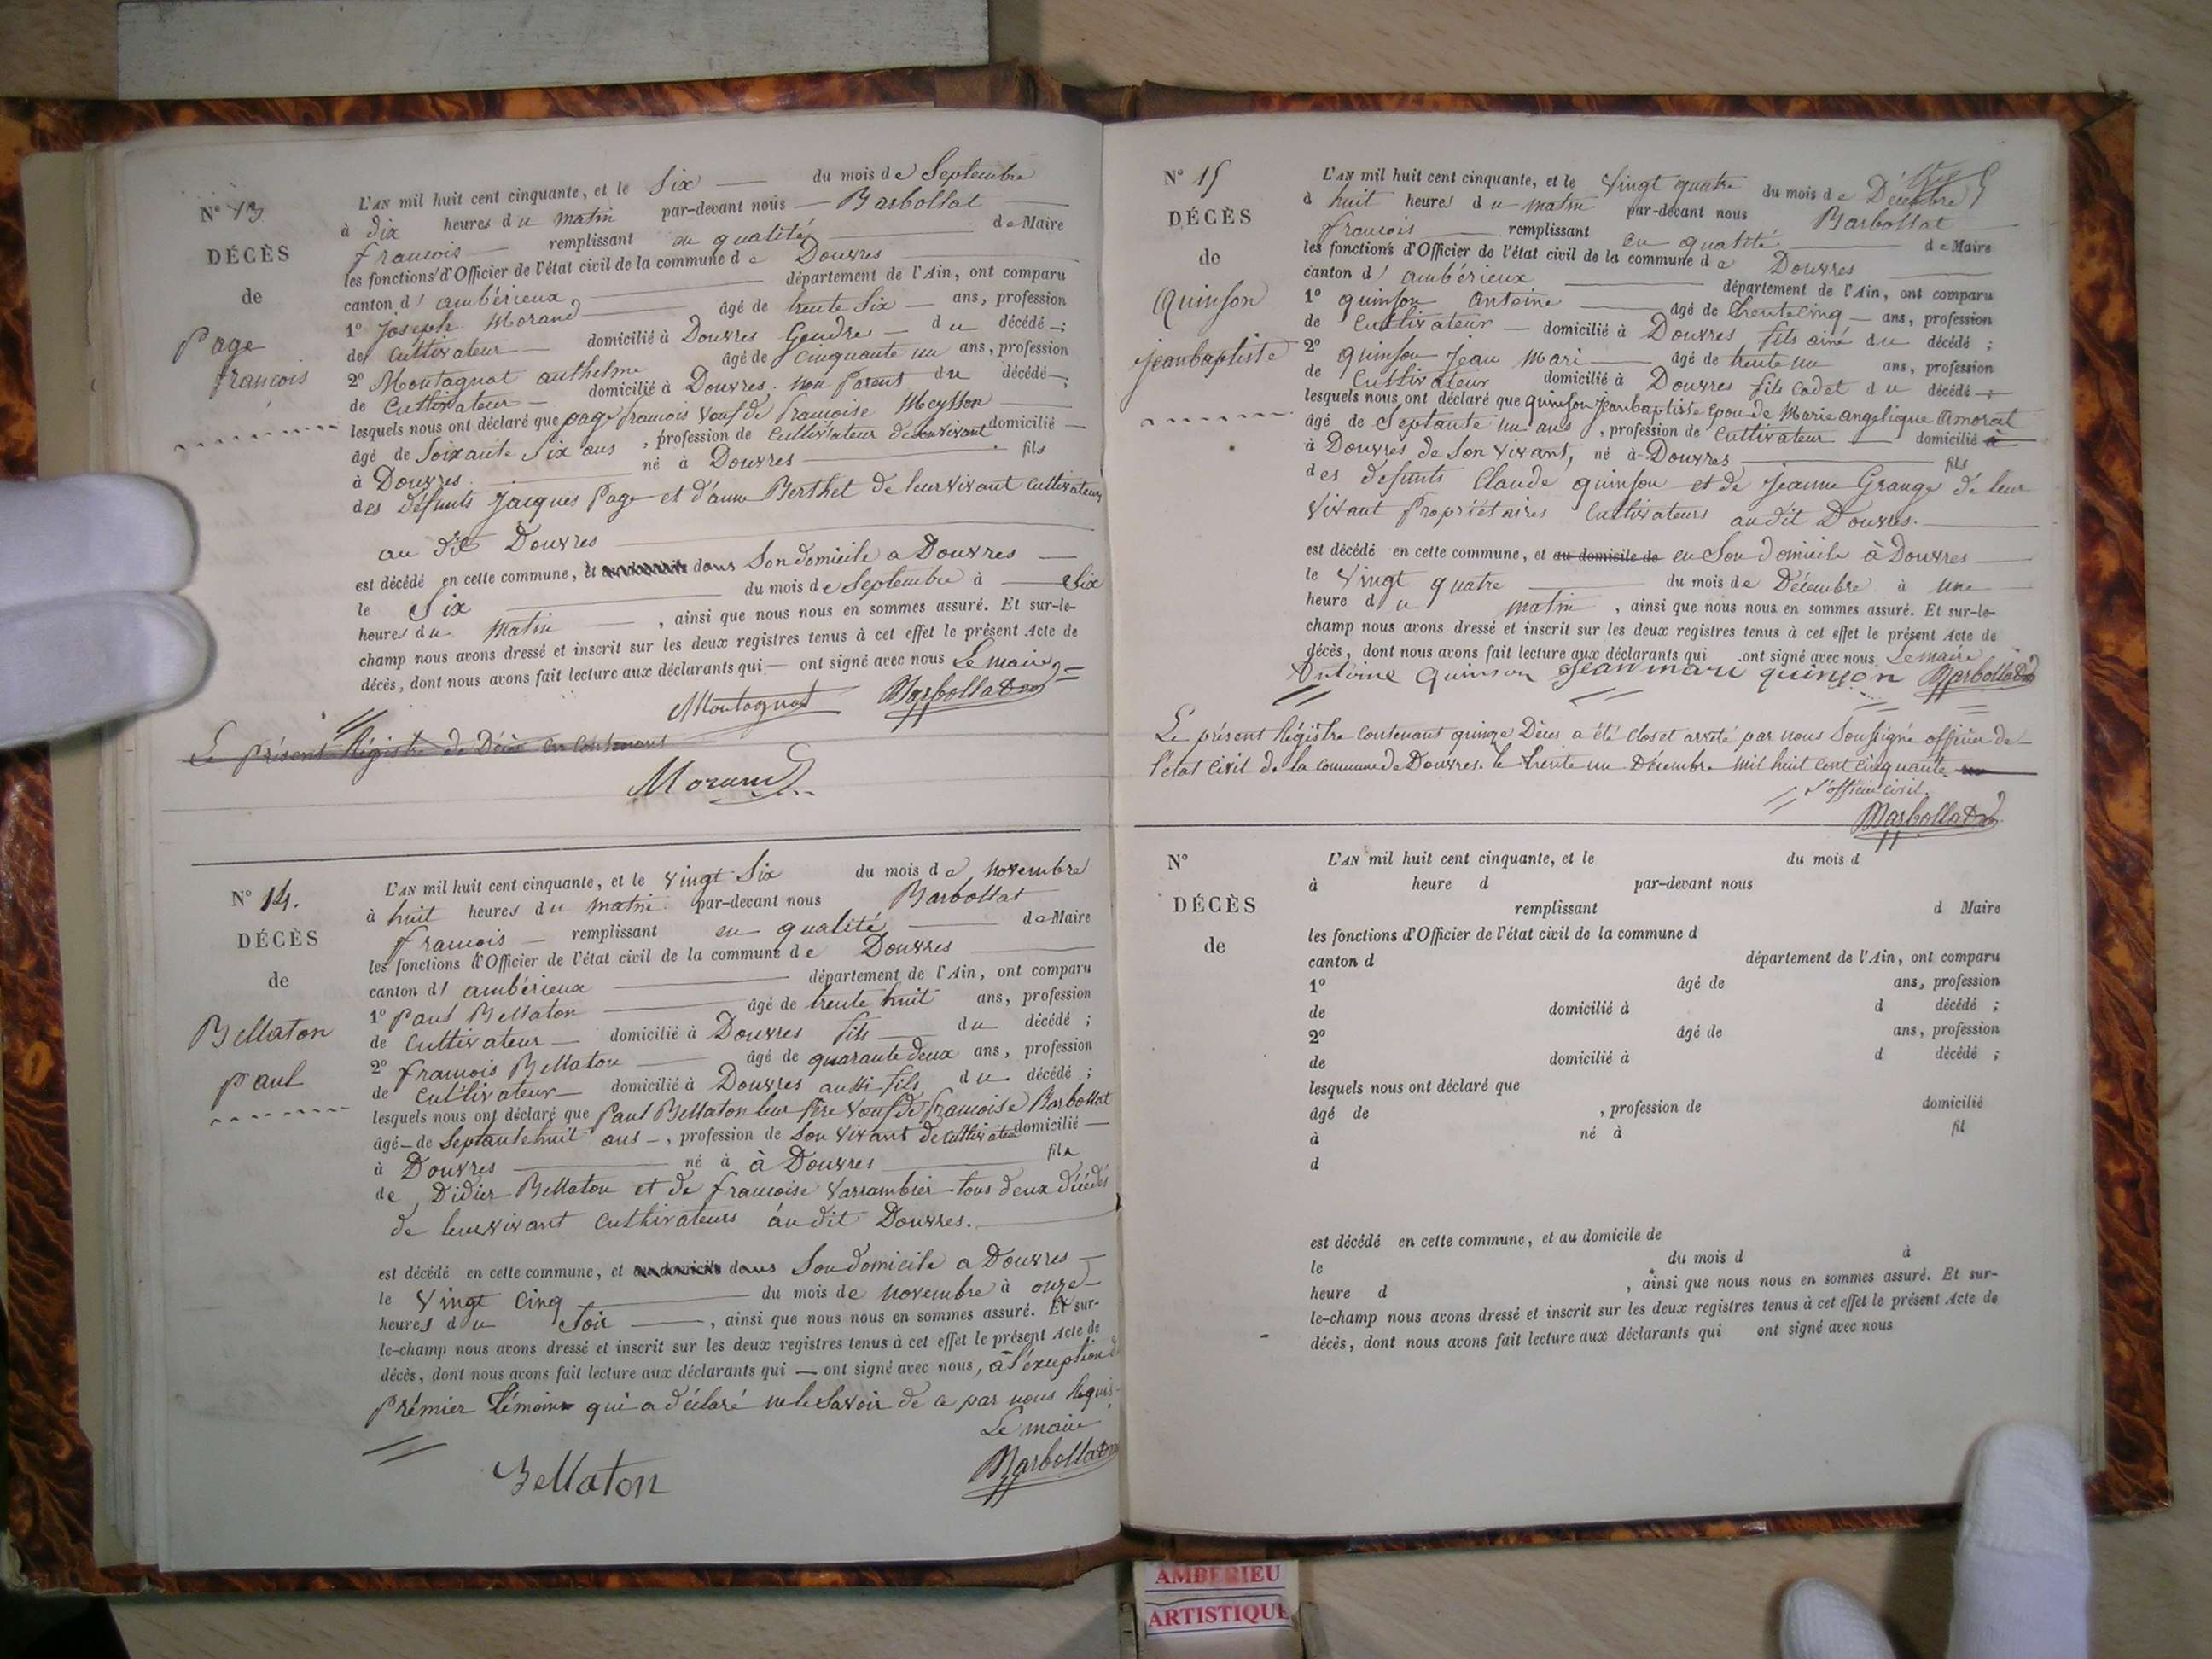 N° 13
DÉCÈS
de
Page
françois
L'AN mil huit cent cinquante, et le Six du mois de Septembre
à dix heures du matin par-devant nous Barbollat
françois remplissant en qualité de Maire
les fonctions d'Officier de l'état civil de la commune de Douvres
canton d'ambérieux département de l'Ain, ont comparu
1° Joseph Morand âgé de trente Six ans, profession
de Cultivateur domicilié à Douvres Gendre du décédé ;
2° Montagnat anthelme âgé de Cinquante un ans, profession
de Cultivateur domicilié à Douvres. non Parent du décédé ;
lesquels nous ont déclaré que page françois Veuf de françoise Meysson
âgé de Soixante Six ans, profession de Cultivateur de son vivant domicilié
à Douvres né à Douvres fils
des défunts Jacques Page et d'anne Berthet de leur vivant Cultivateurs
au dit Douvres
est décédé en cette commune, et dans Son domicile a Douvres
le Six du mois de Septembre à Six
heures du matin, ainsi que nous nous en sommes assuré. Et sur-le-
champ nous avons dressé et inscrit sur les deux registres tenus à cet effet le présent Acte de
décès, dont nous avons fait lecture aux déclarants qui ont signé avec nous Le maire
Montagnat Barbollat
Le présent Régistre de Décès en Contenant
Morand
N° 14.
DÉCÈS
de
Bellaton
paul
L'AN mil huit cent cinquante, et le vingt Six du mois de novembre
à huit heures du matin par-devant nous Barbollat
françois remplissant en qualité de Maire
les fonctions d'Officier de l'état civil de la commune de Douvres
canton d'ambérieux département de l'Ain, ont comparu
1° Paul Bellaton âgé de trente huit ans, profession
de Cultivateur domicilié à Douvres fils du décédé ;
2° françois Bellaton âgé de quarante deux ans, profession
de Cultivateur domicilié à Douvres aussi fils du décédé ;
lesquels nous ont déclaré que Paul Bellaton leur Père Veuf de françoise Barbollat
âgé de Septante huit ans, profession de Son vivant de Cultivateur domicilié
à Douvres né à à Douvres fils
de Didier Bellaton et de françoise Varrambier tous deux décédés
de leur vivant Cultivateurs audit Douvres.
est décédé en cette commune, et au domicile dans Son domicile a Douvres
le Vingt Cinq du mois de novembre à onze
heures du Soir, ainsi que nous nous en sommes assuré. Et sur-
le-champ nous avons dressé et inscrit sur les deux registres tenus à cet effet le présent Acte de
décès, dont nous avons fait lecture aux déclarants qui ont signé avec nous, à l'exception
Prémier témoin qui a déclaré ne le Savoir de ce par nous Requis
Le maire
Bellaton Barbollat
N° 15
DÉCÈS
de
Quinson
jeanbaptiste
L'AN mil huit cent cinquante, et le Vingt quatre du mois de Décembre
à huit heures du matin par-devant nous Barbollat
françois remplissant en qualité de Maire
les fonctions d'Officier de l'état civil de la commune de Douvres
canton d'ambérieux département de l'Ain, ont comparu
1° quinson Antoine âgé de trente cinq ans, profession
de Cultivateur domicilié à Douvres fils ainé du décédé ;
2° quinson Jean Mari âgé de trente un ans, profession
de Cultivateur domicilié à Douvres fils Cadet du décédé ;
lesquels nous ont déclaré que quinson Jeanbaptiste Epou de Marie angelique Amorat
âgé de Septante un ans, profession de Cultivateur domicilié à
à Douvres de Son vivant, né à Douvres fils
des défunts Claude quinson et de Jeanne Grange de leur
vivant Propriétaires Cultivateurs audit Douvres.
est décédé en cette commune, et au domicile de en Son domicile à Douvres
le Vingt quatre du mois de Décembre à une
heure du matin, ainsi que nous nous en sommes assuré. Et sur-le-
champ nous avons dressé et inscrit sur les deux registres tenus à cet effet le présent Acte de
décès, dont nous avons fait lecture aux déclarants qui ont signé avec nous Le maire
Antoine Quinson Jean mari quinson Barbollat
Le présent Régistre Contenant quinze Décès a été clos et arrêté par nous Soussigné officier de
l'état Civil de la Commune de Douvres. le trente un Décembre mil huit Cent Cinquante
L'officier civil.
Barbollat
N°
DÉCÈS
de
L'AN mil huit cent cinquante, et le du mois d
à heure d par-devant nous
remplissant d Maire
les fonctions d'Officier de l'état civil de la commune d
canton d département de l'Ain, ont comparu
1° âgé de ans, profession
de domicilié à d décédé ;
2° âgé de ans, profession
de domicilié à d décédé ;
lesquels nous ont déclaré que
âgé de , profession de domicilié
à né à fil
d
est décédé en cette commune, et au domicile de
le du mois d à
heure d , ainsi que nous nous en sommes assuré. Et sur-
le-champ nous avons dressé et inscrit sur les deux registres tenus à cet effet le présent Acte de
décès, dont nous avons fait lecture aux déclarants qui ont signé avec nous
AMBERIEU
ARTISTIQUE